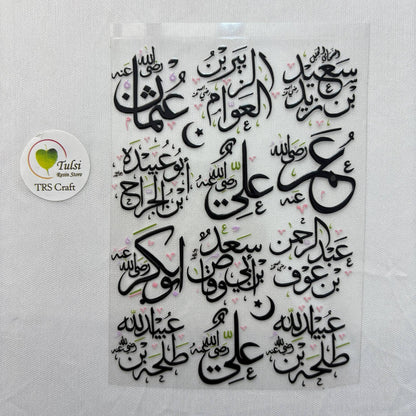 Tulsi
Resin Store
TRS Craft
سعيد
بن زيد
زبير بن
العوام
رضي الله عنه
عثمان
رضي الله عنه
عمر
رضي الله عنه
علي
رضي الله عنه
أبو عبيدة
ابن الجراح
عبد الرحمن
بن عوف
سعد
بن أبي وقاص
أبو بكر
رضي الله عنه
عبيد الله
طلحة بن
رضي الله عنه
علي
رضي الله عنه
عبيد الله
طلحة بن
رضي الله عنه